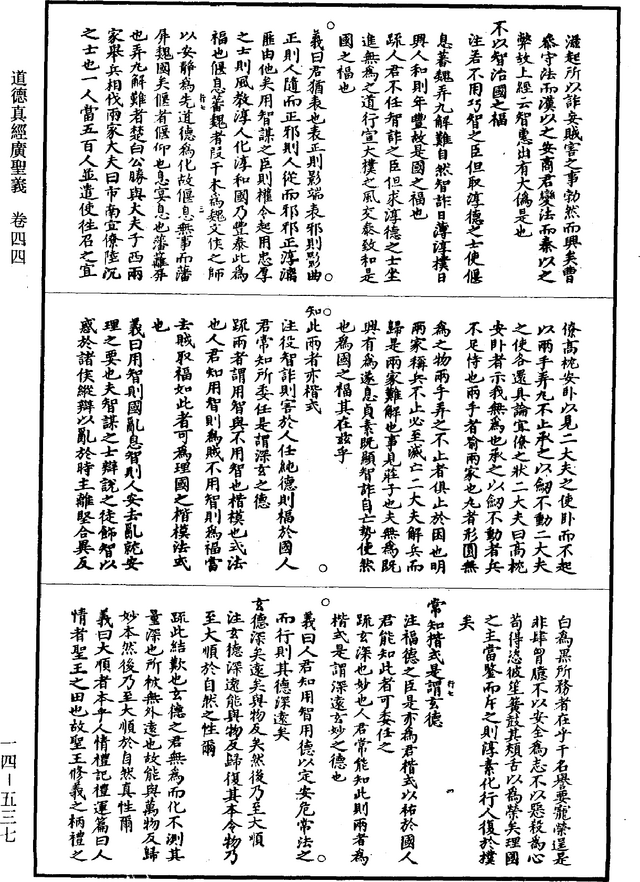 滋起所以詐妄賊害之事勃然而興矣曹
參守法而漢以之安商君變法而秦以之
弊故上經云智惠出有大僞是也
不以智治國國之福
注若不用巧智之臣但取淳德之士使偃
息蕃魏弄九解難自然智詐日薄淳樸日
興人和則年豐故是國之福也
疏人君不任智詐之臣但求淳德之士坐
進無為之道行宣大樸之風交泰致和是
國之福也
義曰君猶表也表正則影端表邪則影曲
正則人隨而正邪則人從而邪邪正淳漓
匪由他矣用智謀之臣則權令起用忠厚
之士則風教淳人化淳和國乃豐泰此為
福也偃息蕃魏者段干木為魏文侯之師
以安靜為先道德為化故偃息無事而藩
屏魏國矣偃者偃仰也息宴息也藩蘺屏
也弄九解難者楚白公勝與大夫子西兩
家舉兵相伐兩家大夫曰市南宜僚陸沉
之士也一人當五百人並遣使往召之宜
僚高枕安卧以見二大夫之使卧而不起
以兩手弄九不止承之以劒不動二大夫
之使各還具論宜僚之狀二大夫曰高枕
安卧者示我無為也承之以劒不動者兵
不足恃也兩手者喻兩家也九者形圓無
為之物兩手弄之不止者俱止於困也明
兩家稱兵不止必至滅亡二大夫解兵而
歸是兩家難解也事見莊子也夫無為既
興有為遂息貞素既顯智詐自亡勢使然
也為國之福其在茲乎
知此兩者亦楷式
注役智詐則害於人任純德則福於國人
君常知所委任是謂深玄之德
疏兩者謂用智與不用智也楷模也式法
也人君知用智則為賊不用智則為福當
去賊取福如此者可為理國之楷模法式
也
義曰用智則國亂息智則人安去亂就安
理之要也夫智謀之士辯說之徒飾智以
惑於諸侯縱辯以亂於時主離堅合異反
白為黑所務者在乎干石譽要寵榮逞是
非肆胷臆不以安全為志不以惡殺為心
苟得恣彼笙簧鼓其頰舌以為榮矣理國
之主當鑒而斥之則淳素化行人復於樸
矣
常知楷式是謂玄德
注福德之臣是亦為君楷式以祐於國人
君能知此者可委任之
疏玄深也妙也人君常能知此則兩者為
楷式是謂深遠玄妙之德也
義曰人君知用智用德以定安危常法之
而行則其德深遠矣
玄德深矣遠矣與物反矣然後乃至大順
注玄德深遠能與物反歸復其本令物乃
至大順於自然之性爾
疏此結歎也玄德之君無為而化不測其
量深也所被無外遠也故能與萬物反歸
妙本然後乃至大順於自然真性爾
義曰大順者本乎人情禮記禮運篇曰人
情者聖王之田也故聖王修義之柄禮之
道德真經廣聖義 卷四四
一四－五三七